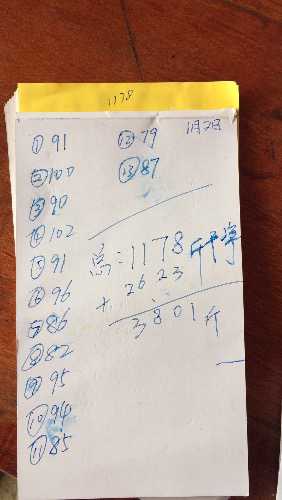 1178
11月2日
①91
②100
③90
④102
⑤91
⑥96
⑦86
⑧82
⑨95
⑩94
⑪85
⑫79
⑬87
总:1178斤
+ 2623
3801斤